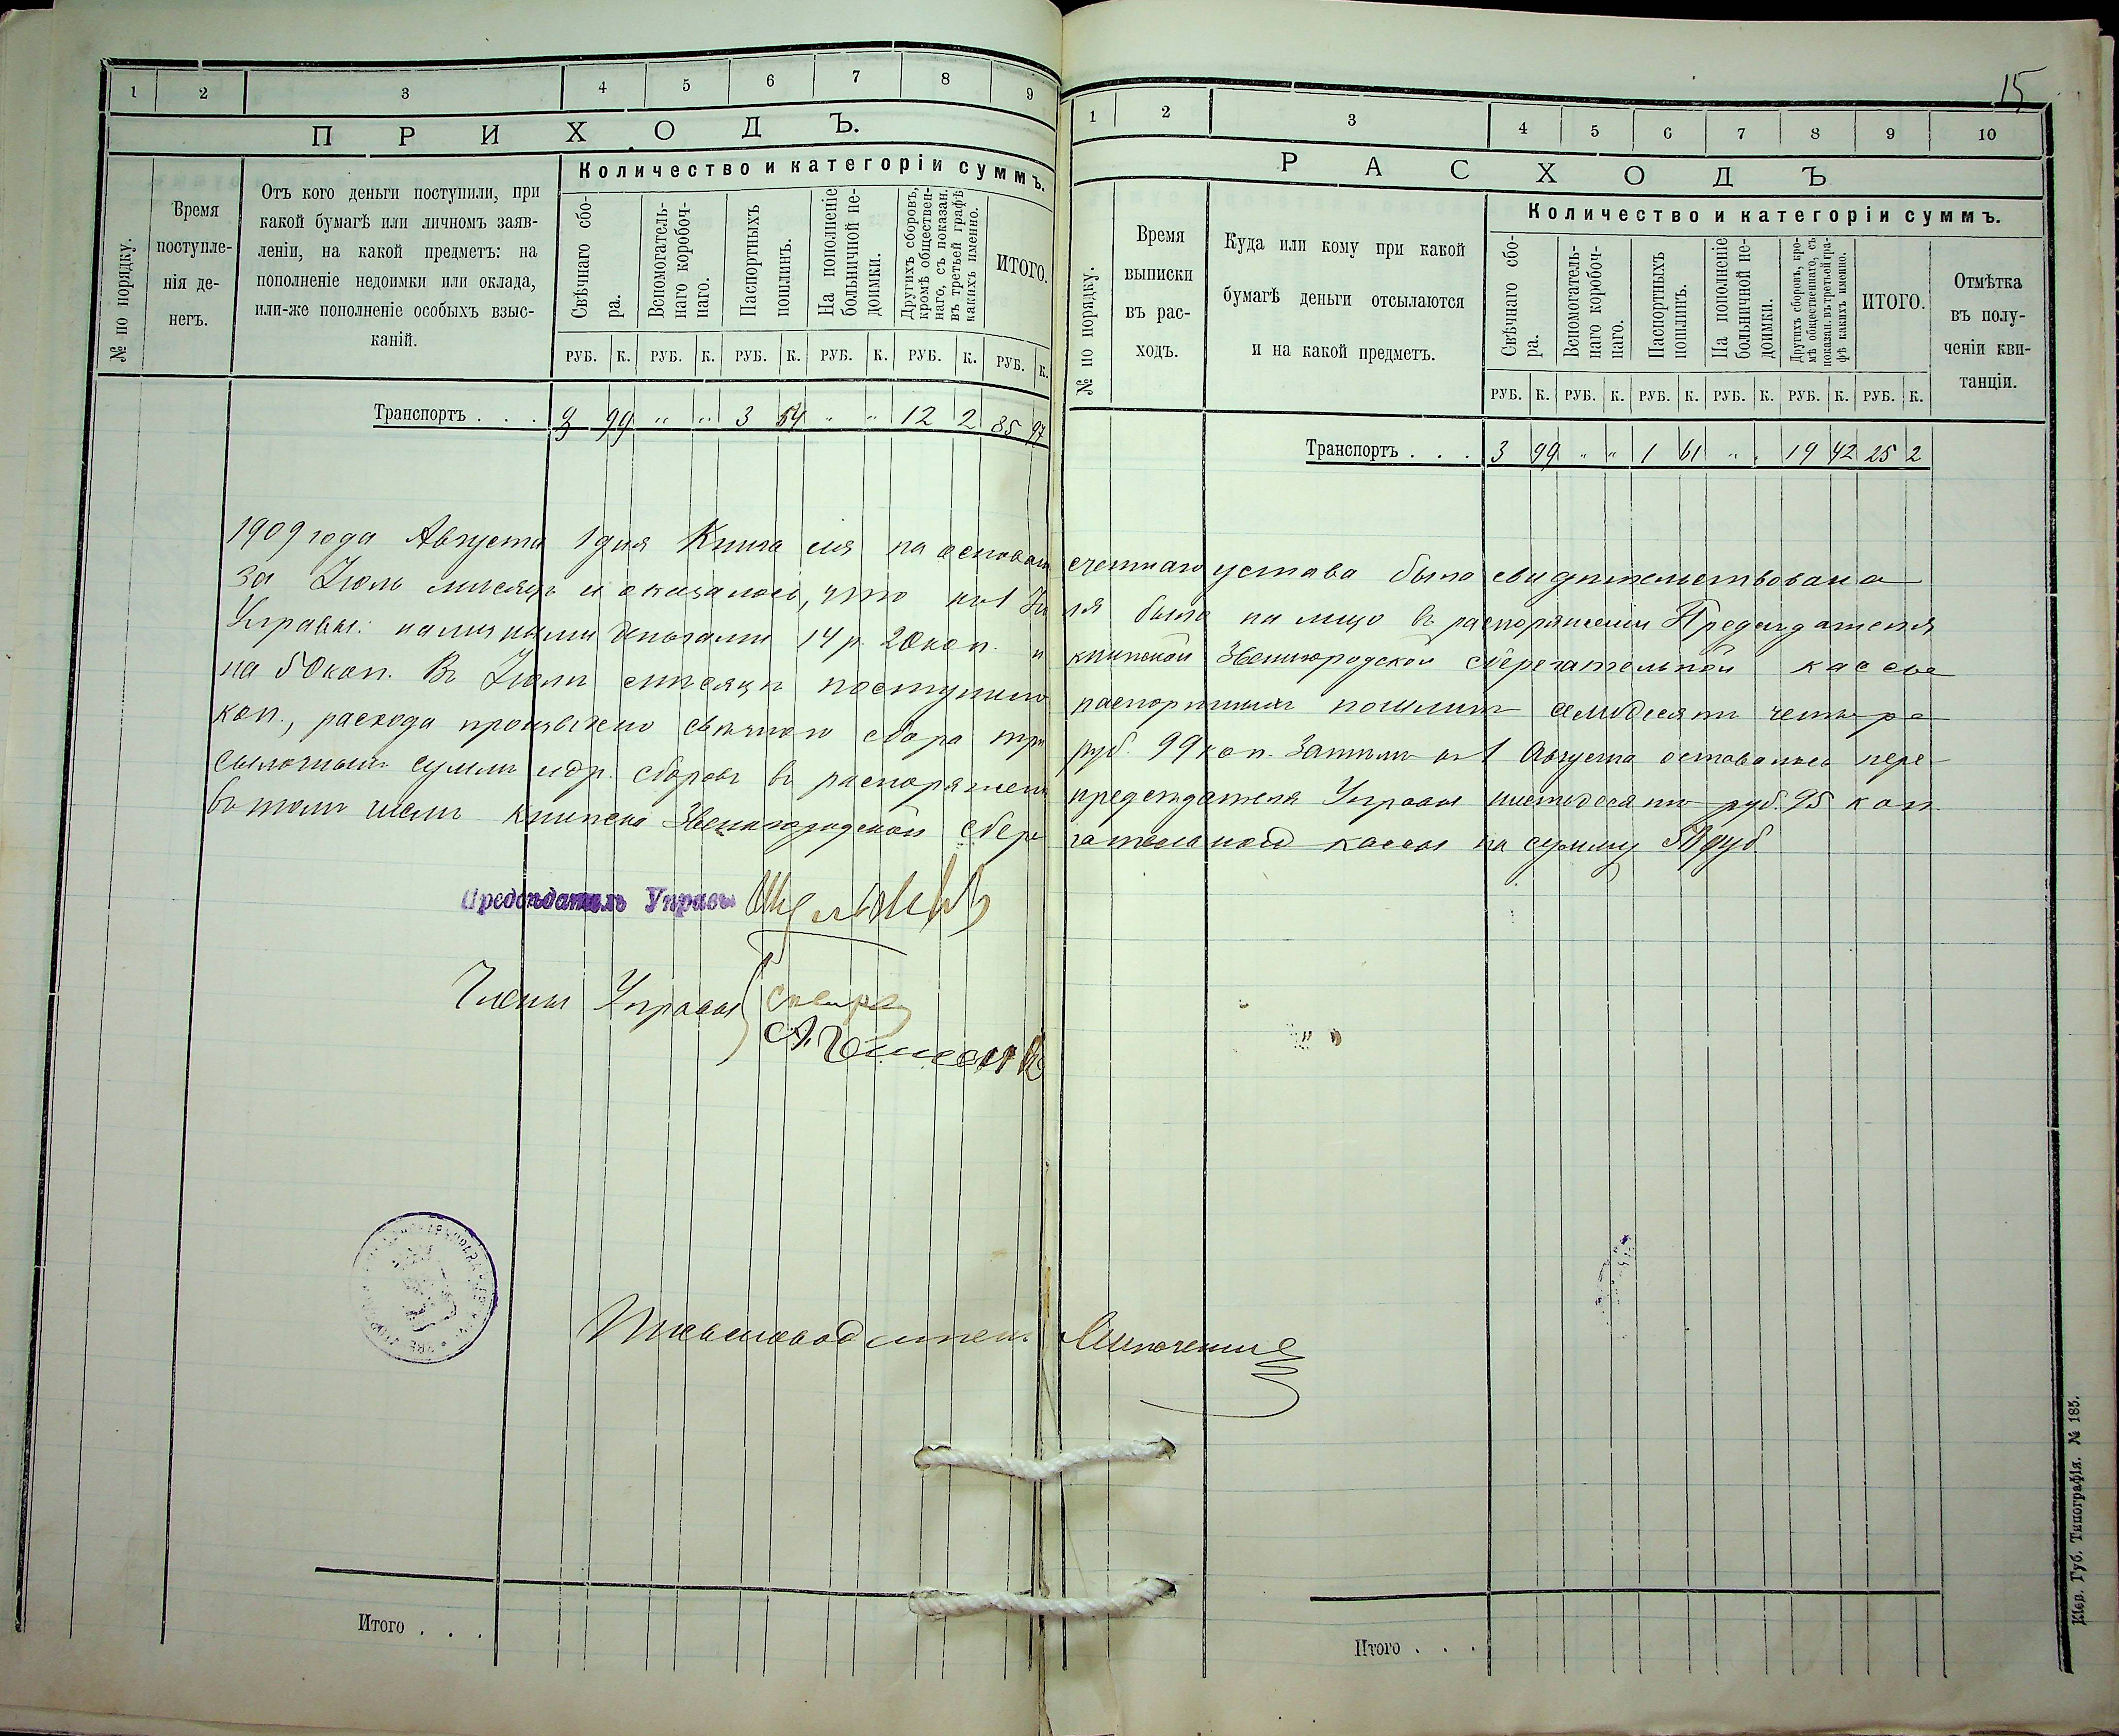 15
1 2 3 4 5 6 7 8 9
ПРИХОДЪ.
№ по порядку.
Время поступле-
нія де-
негъ.
Отъ кого деньги поступили, при
какой бумагѣ или личномъ заяв-
леніи, на какой предметъ: на
пополненіе недоимки или оклада,
или-же пополненіе особыхъ взыс-
каній.
Количество и категоріи суммъ.
Свѣчнаго сбо-
ра.
Вспомогатель-
наго коробоч-
наго.
Паспортныхъ
пошлинъ.
На пополненіе
больничной не-
доимки.
Другихъ сборовъ,
кромѣ обществен-
наго, съ показан.
въ третьей графѣ
какихъ именно.
ИТОГО.
РУБ. К. РУБ. К. РУБ. К. РУБ. К. РУБ. К. РУБ. К.
Транспортъ . . . 99 " " 3 54 " " 12 2 85 97
1 2 3 4 5 6 7 8 9 10
РАСХОДЪ
№ по порядку.
Время
выписки
въ рас-
ходъ.
Куда или кому при какой
бумагѣ деньги отсылаются
и на какой предметъ.
Количество и категоріи суммъ.
Свѣчнаго сбо-
ра.
Вспомогатель-
наго коробоч-
наго.
Паспортныхъ
пошлинъ.
На пополненіе
больничной не-
доимки.
Другихъ сборовъ, кро-
мѣ общественнаго, съ
показан. въ третьей гра-
фѣ какихъ именно.
ИТОГО.
Отмѣтка
въ полу-
ченіи кви-
танціи.
РУБ. К. РУБ. К. РУБ. К. РУБ. К. РУБ. К. РУБ. К.
Транспортъ . . . 3 99 " " 1 61 " " 19 42 25 2
1909 года Августа 1 дня Книга сія на основан счетнаго устава была свидѣтельствована
за Іюль мѣсяцъ и оказалось, что къ 1 Ію ля было на лицо въ распоряженіи Предсѣдателя
Управы: наличными деньгами 14 р. 20 коп. и книжкой Звенигородской сберегательной кассы
на 50 коп. Въ Іюлѣ мѣсяцѣ поступило паспортныхъ пошлинъ семьдесятъ четыре
коп., расхода произведено свѣчного сбора три руб. 99 коп. Затѣмъ къ 1 Августа оставалось пере-
сылочныхъ суммъ и др. сборовъ въ распоряжен предсѣдателя Управы шестьдесятъ руб. 95 коп.
въ томъ числѣ книжка Звенигородской сбере гательной кассы на сумму 50 руб.
Предсѣдатель Управы
Члены Управы
Письмоводитель
Итого . . .
Итого . . .
Кіев. Губ. Типографія. № 185.